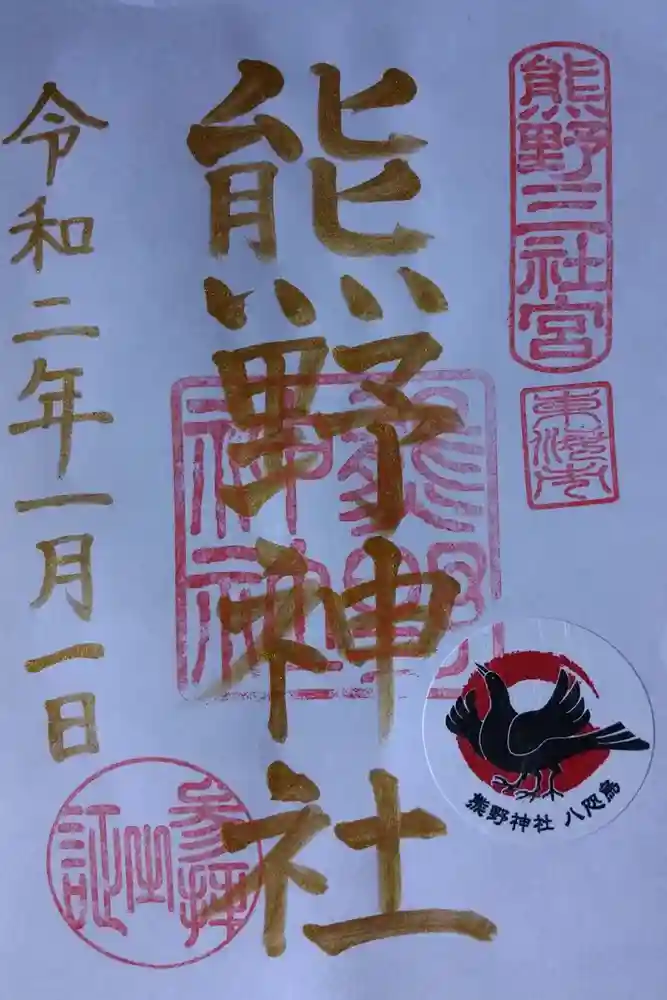 熊野三社宮
東海市
熊野神社
熊野神社
令和二年一月一日
参拝之証
熊野神社 八咫烏